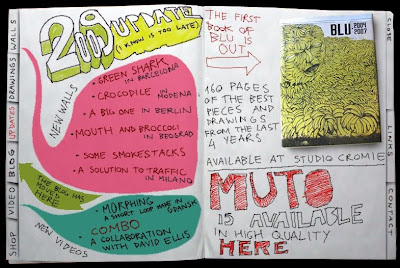 2009 UPDATE!
(I KNOW IS TOO LATE)
NEW WALLS
• GREEN SHARK
IN BARCELONA
• CROCODILE IN MODENA
• A BIG ONE IN BERLIN
• MOUTH AND BROCCOLI
IN BEOGRAD
• SOME SMOKESTACKS
• A SOLUTION TO TRAFFIC
IN MILANO
THE BLOG HAS
MOVED
HERE
• MORPHING
A SHORT LOOP MADE IN GDANSK
COMBO
• A COLLABORATION
WITH DAVID ELLIS
NEW VIDEOS
WALLS
DRAWINGS
UPDATES
BLOG
VIDEO
SHOP
THE FIRST
BOOK OF
BLU IS
OUT
BLU 2004
2007
160 PAGES
OF THE BEST
PIECES AND
DRAWINGS
FROM THE LAST
4 YEARS
AVAILABLE AT STUDIO CROMIE
MUTO
IS AVAILABLE
IN HIGH QUALITY
HERE
CLOSE
LINKS
CONTACT